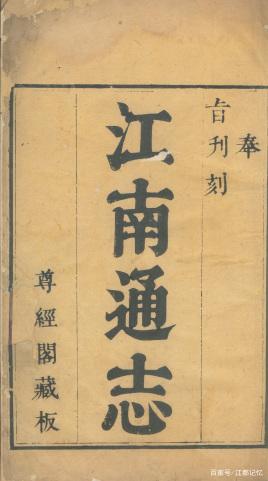 奉
旨刊刻
江南通志
尊經閣藏板
百家号/江都记忆